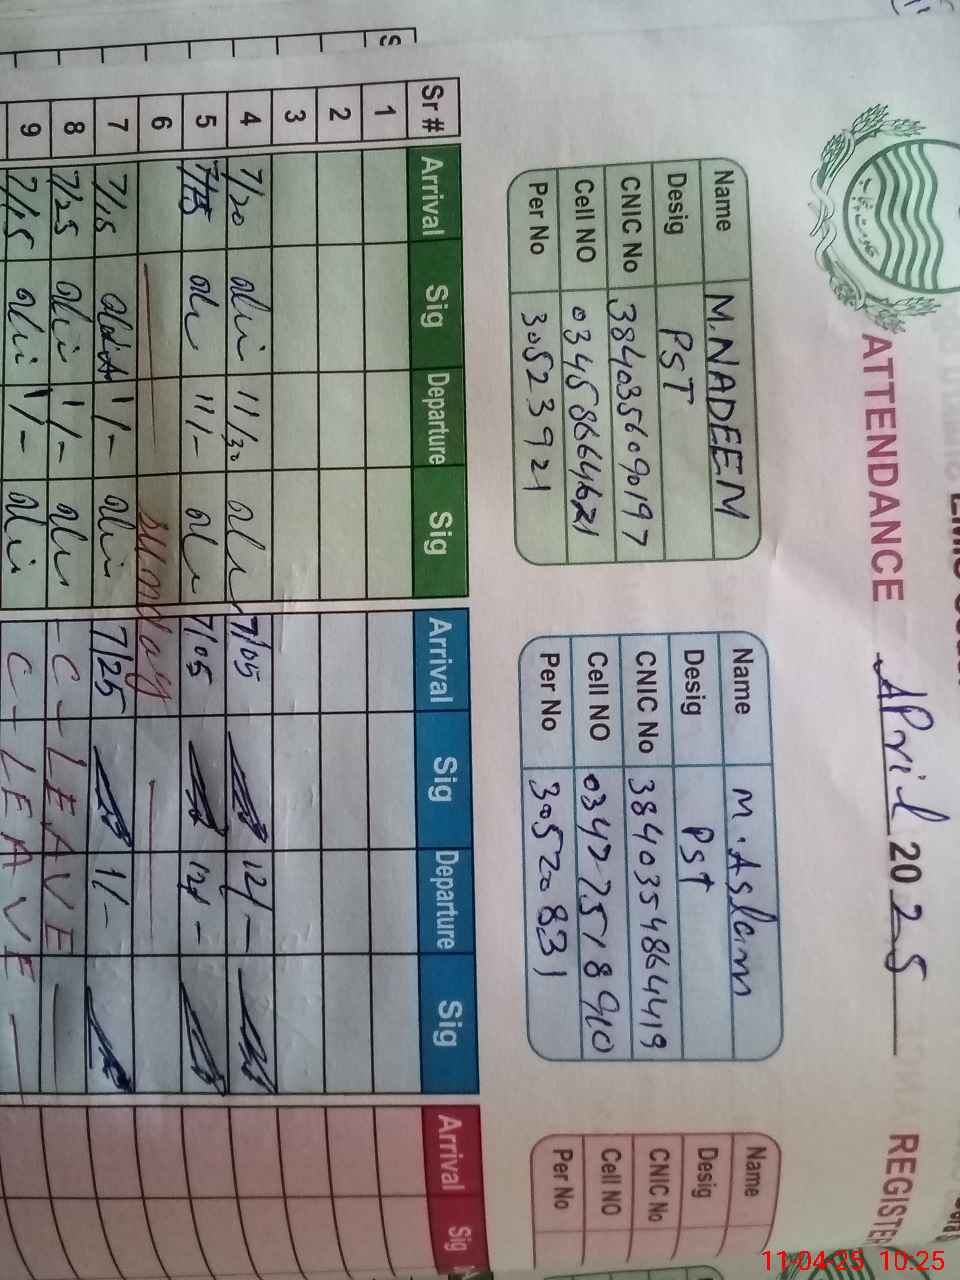 ATTENDANCE APril 2025 REGISTER
Name M.NADEEM
Desig PST
CNIC No 3840356090197
Cell NO
Per No 30523921
Name M.Aslam
Desig Pst
CNIC No 3840354864419
Cell NO 03472518910
Per No 30520831
Name
Desig
CNIC No
Cell NO
Per No
Sr# Arrival Sig Departure Sig Arrival Sig Departure Sig Arrival Sig
1
2
3
4 7/20 11/30 7/05 12/-
5 11/- 7/05 12/-
6 sunday
7 7/15 1/- 7/25 1/-
8 7/25 1/- -C-LEAVE-
9 7/15 1/- C-LEAVE-
11-04-25 10:25